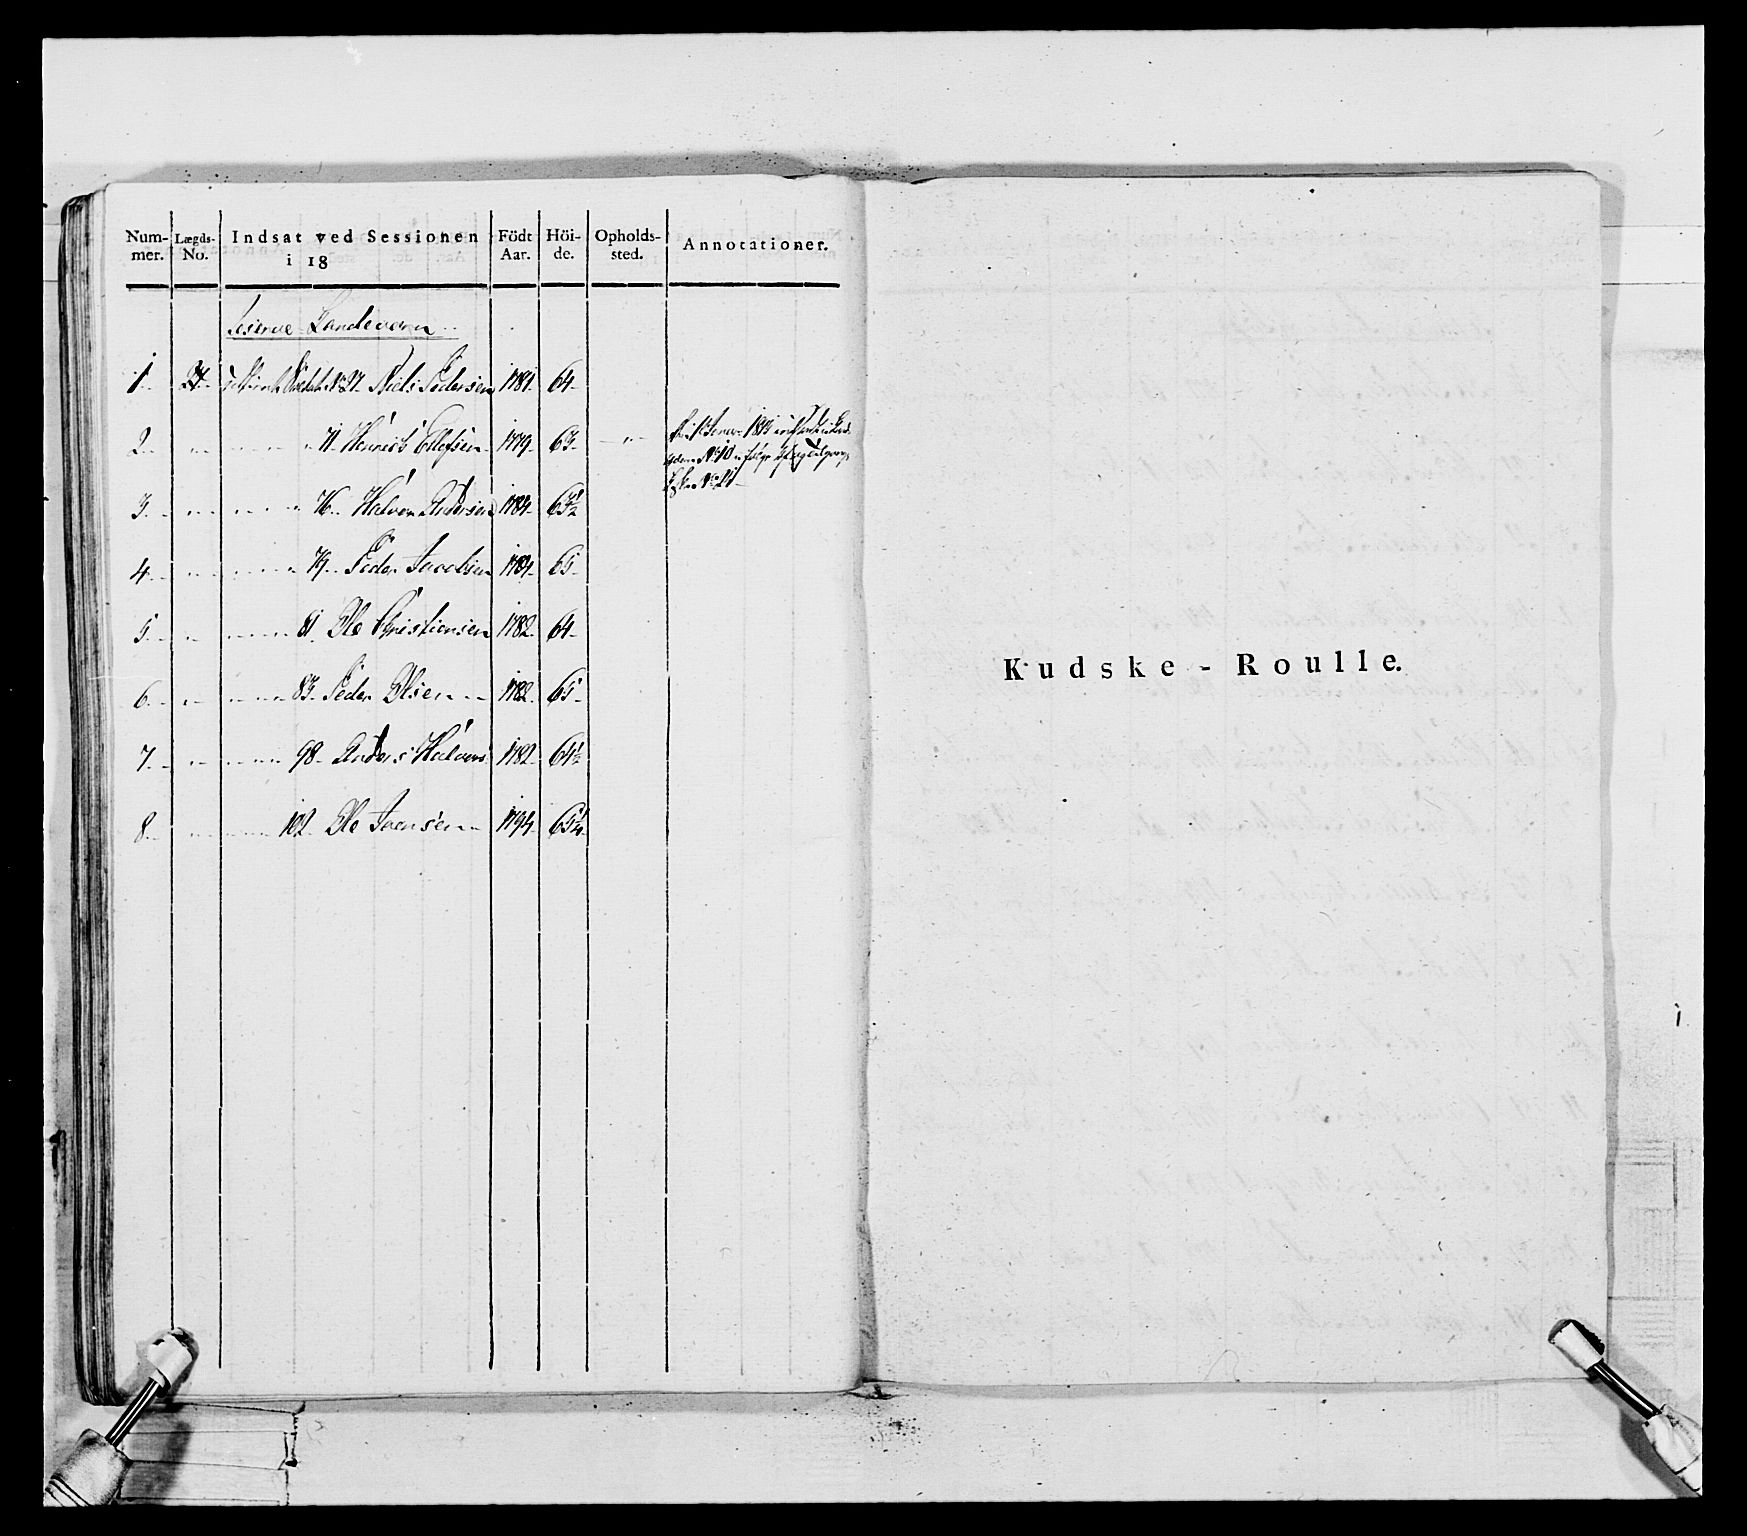 Num-mer. Lægds-No. Indsat ved Sessionen i 18 Födt Aar. Höi-de. Opholds-sted. Annotationer.
Reserve Landeværn
1 24 No 27. Niels Pedersen 1781. 64
2 " 71. Henrich Ellefsen 1779. 63 "
No 10
3 " 76. Halvor Andersen 1784. 63½
4 " 79. Peder Jacobsen 1784. 65
5 " 81. Ole Christiansen 1782. 64
6 " 83. Peder Olsen 1782. 65
7 " 98. Anders Halvors 1782. 64½
8 " 102. Ole Jvensen 1794. 65¼
Kudske-Roulle.